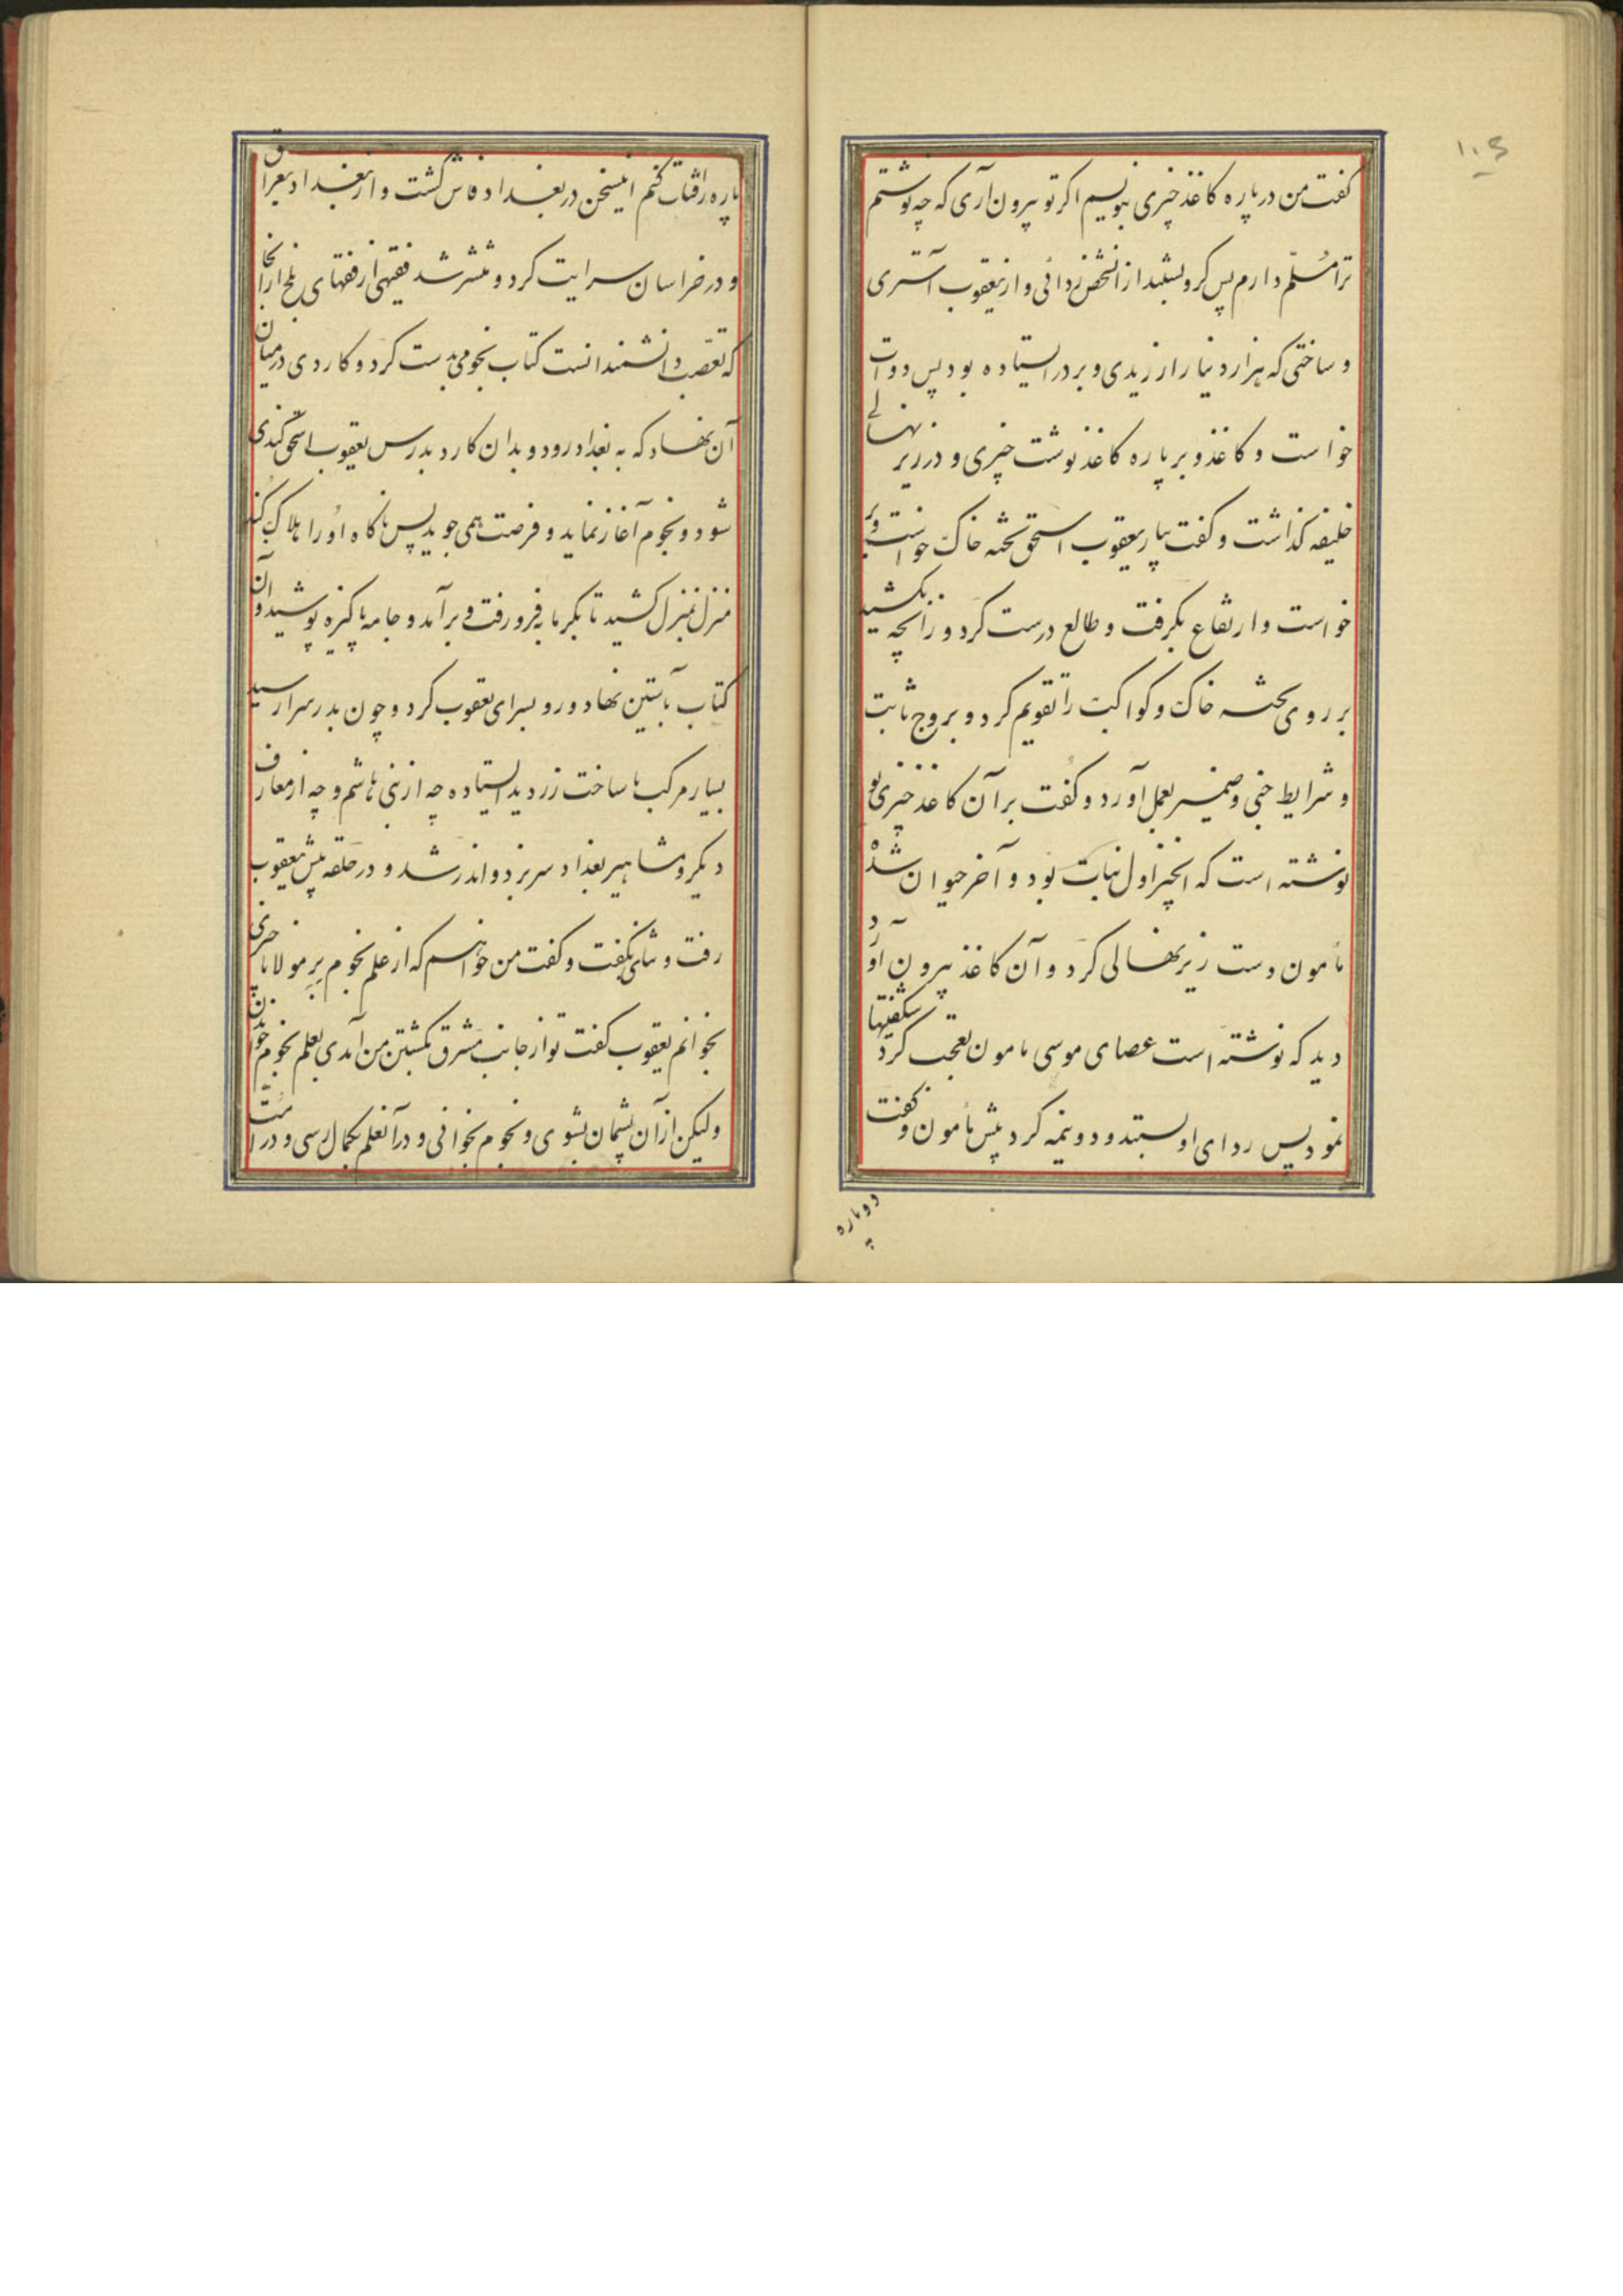 ۱۰۵
کفت من در پاره کاغذ چیزی بنویسم اکر تو بیرون آری که چه نوشتم
ترا مُسلّم دارم پس کرو بستند از آنشخص ردائی و از یعقوب استری
و ساختی که هزار دینار ارزیدی و بر در ایستاده بود پس دوات
خواست و کاغذ و بر پاره کاغذ نوشت چیزی و در زیر نهالی
خلیفه کذاشت و کفت بیار یعقوب اسحق تخته خاک خواست و بر
خواست و ارتفاع بکرفت و طالع درست کرد و زانچه بکشید
بر روی تخته خاک و کواکب را تقویم کرد و بروج ثابت
و شرایط خبی و ضمیر بعمل آورد و کُفت بر آن کاغذ چیزی
نوشته است که انچیز اول نبات بود و آخر حیوان شدْ
مأمون دست زیر نهالی کرد و آن کاغذ بیرون آورد
دید که نوشته است عصای موسی مامون تعجب کرد شکفتیها
نمود پس ردای او بستد و دو نیمه کرد پیش مأمون و کفت
دوپاره
پاره را قتاب کنم اینسخن در بغداد فاش کشت و از بغداد بعراق
و در خراسان سرایت کرد و منتشر شد فقیهی از فقهای بلخ از آنجا
که تعصّب دانشمندانست کتاب نجومی بدست کرد و کاردی در میان
آن نهاد که به بغداد رود و بدان کارد بدرس یعقوب اسحق کندی
شود و نجوم آغاز نماید و فرصت همی جوید پس ناکاه اورا هلاک کند
منزل بمنزل کشید تا بکرمابه فرو رفت و برآمد و جامه پاکیزه پوشید و آن
کتاب بآستین نهاد و رو بسرای یعقوب کرد و چون بدر سرا رسید
بسیار مرکب با ساخت زر دید ایستاده چه از بنی هاشم و چه از معارف
دیکر و مشاهیر بغداد سر بزد و اندر شد و در حلقه پیش یعقوب
رفت و ثنای بکفت و کفت من خواهم که از علم نجوم بر مولانا چیزی
بخوانم یعقوب کفت تو از جانب مشرق بکشتن من آمدی بعلم نجوم خواندن
ولیکن از آن پشیمان بشوی و نجوم بخوانی و در آنعلم بکمال رسی و در امّت